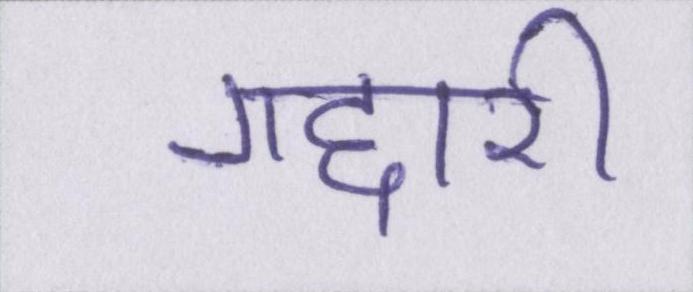 गद्दारी